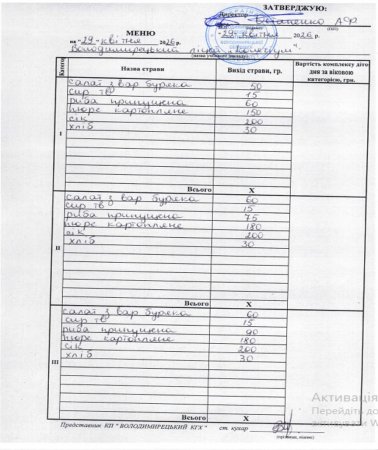 ЗАТВЕРДЖУЮ:
Директор Остапенко
МЕНЮ
на "29" квітня 2026 р.
"29" квітня 2026 р.
Володимирецький ліцей "Колегіум".
Назва страви Вихід страви, гр. Вартість комплексу діто дня за віковою категорією, грн.
I
салат з вар буряка 50
сир тв 15
риба припущена 60
пюре картопляне 150
сік 200
хліб 30
Всього X
II
салат з вар буряка 60
сир тв 15
риба припущена 75
пюре картопляне 180
сік 200
хліб 30
Всього X
III
салат з вар буряка 60
сир тв 15
риба припущена 90
пюре картопляне 180
сік 200
хліб 30
Всього X
Представник КП " ВОЛОДИМИРЕЦЬКИЙ КГХ " ст. кухар
Активація
Перейдіть до